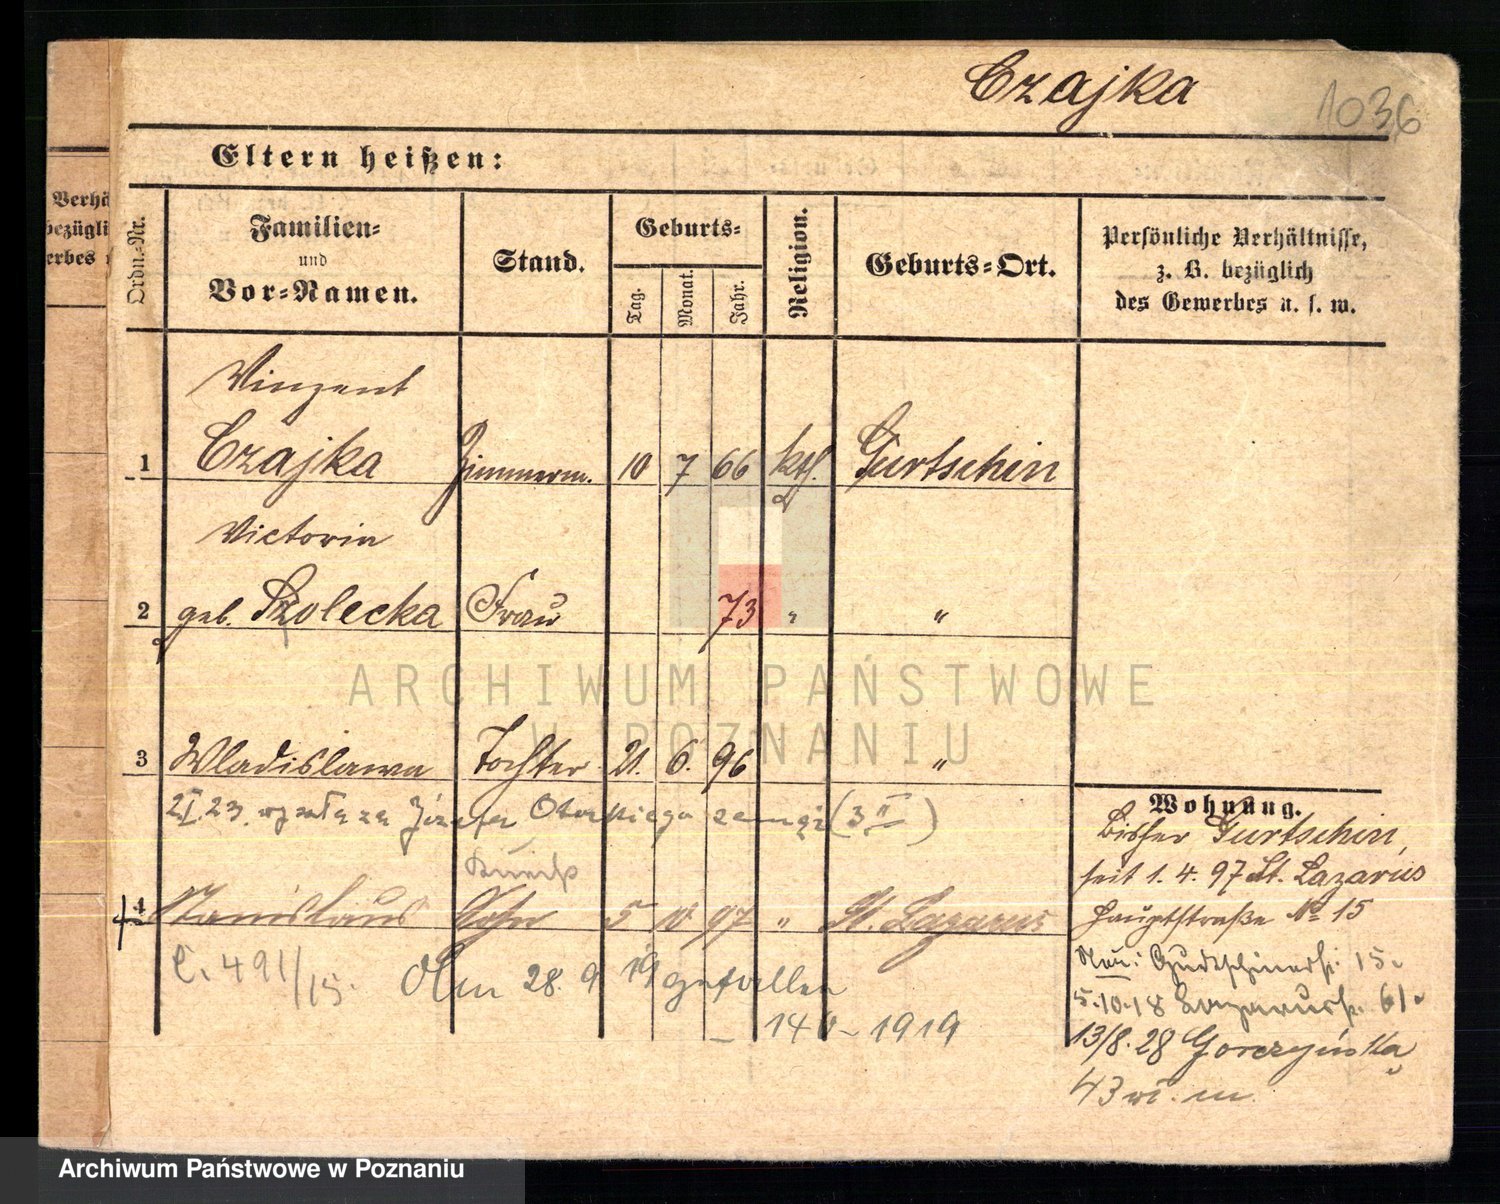 Czajka
1036
Eltern heißen:
Verhä
bezügli
erbes
Ordn.-Nr.
Familien-
und
Vor-Namen.
Stand.
Geburts-
Tag.
Monat.
Jahr.
Religion.
Geburts-Ort.
Persönliche Verhältnisse,
z. B. bezüglich
des Gewerbes u. s. w.
Vinzent
1 Czajka Zimmerm. 10 7 66 kth. Gurtschin
Victoria
2 geb. Szolecka Frau 73 " "
3 Wladislawa Tochter 21. 6. 96 "
za Józefa (3 II)
4 Stanislaus Sohn 5 10 97 " St. Lazarus
C. 491/15. Am 28. 9 gefallen
1919
Wohnung.
bisher Gurtschin,
seit 1. 4. 97 St. Lazarus
Hauptstraße No 15
Neu: Gurtschinerstr. 15.
5.10.18 Lazarusstr. 61.
13/8.28 Gorczyńska
43 m.
ARCHIWUM PAŃSTWOWE
W POZNANIU
Archiwum Państwowe w Poznaniu